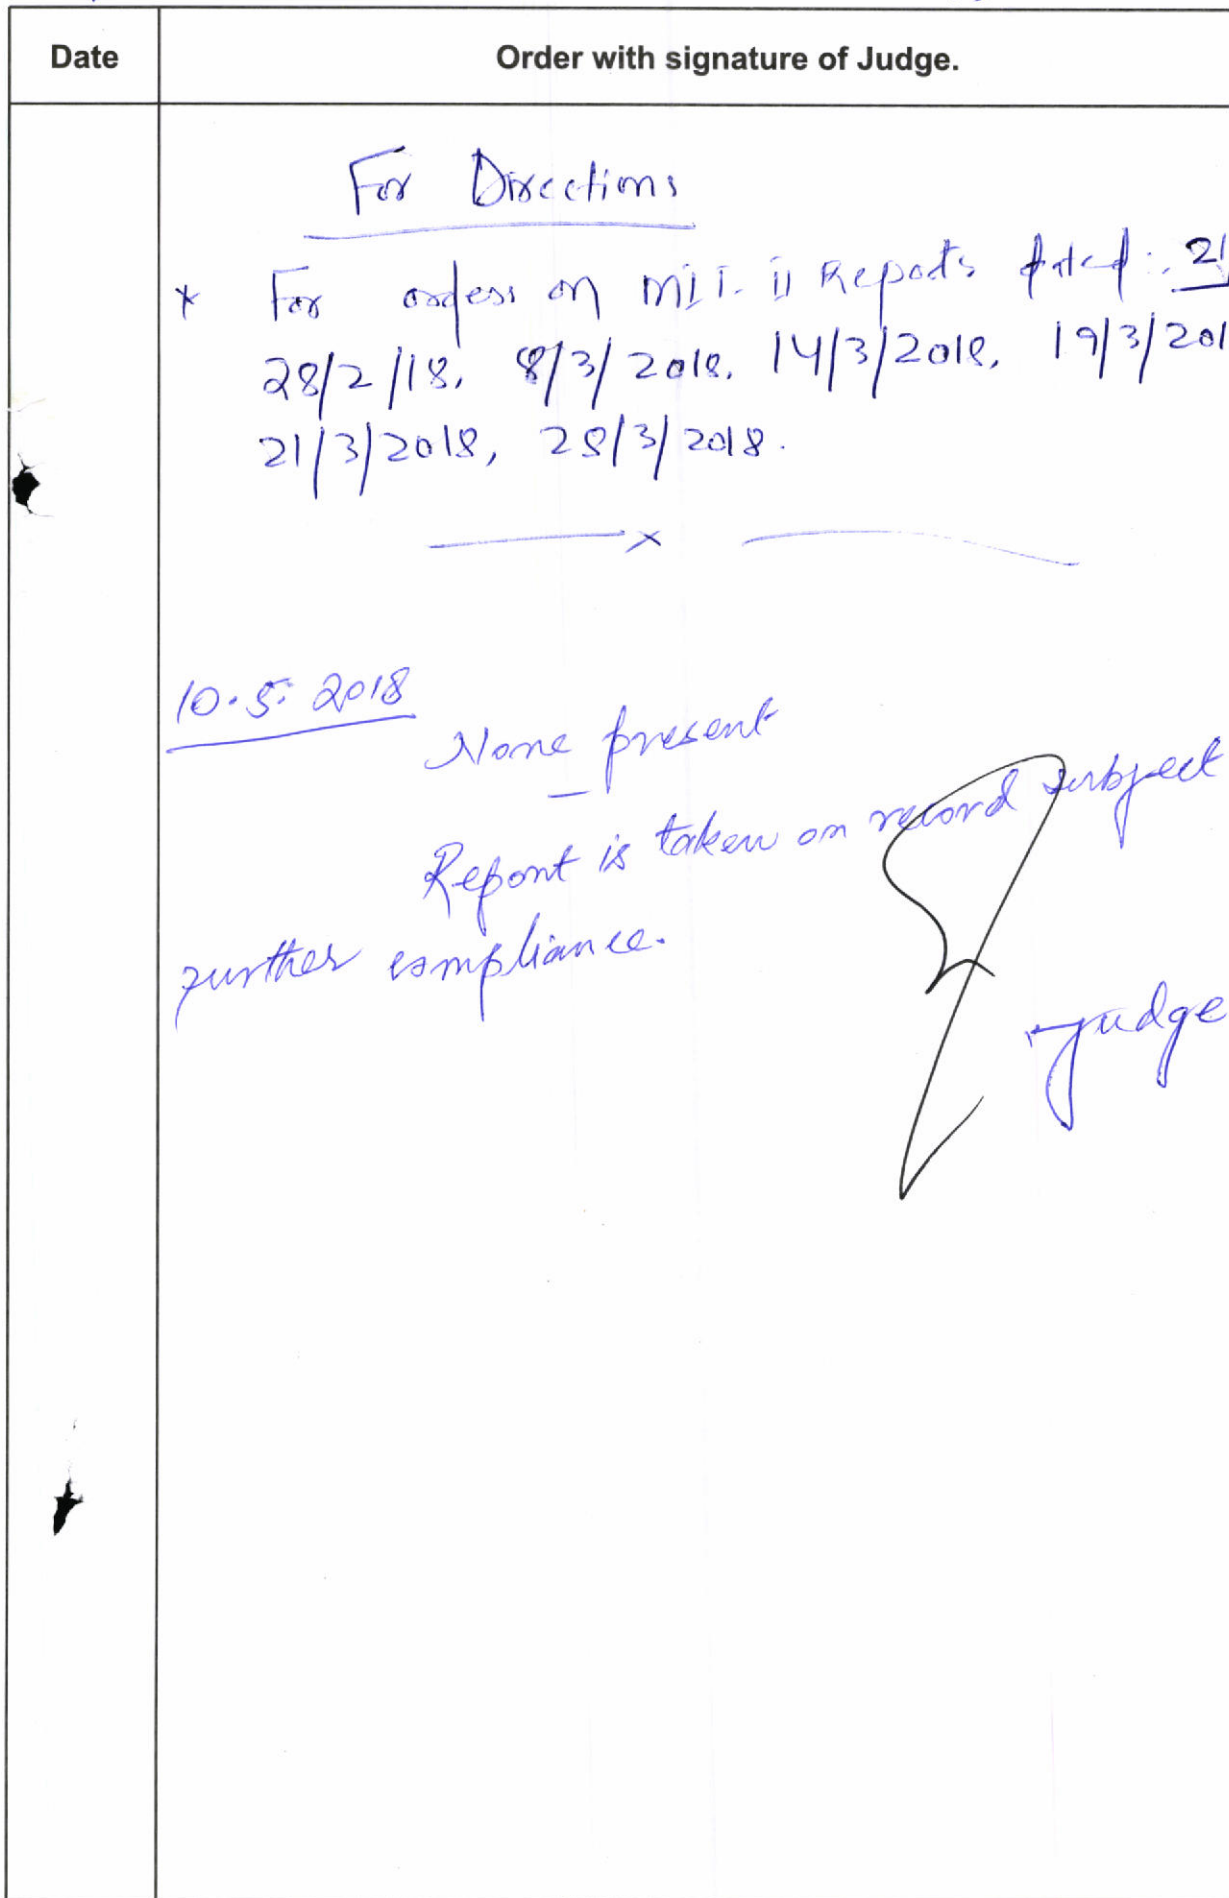 Date
Order with signature of Judge.
For Directions
* For orders on MIT-II Reports dated: 21
28/2/18, 8/3/2018, 14/3/2018, 19/3/201
21/3/2018, 28/3/2018.
x
10.5.2018
None present
Report is taken on record subject
further compliance.
Judge